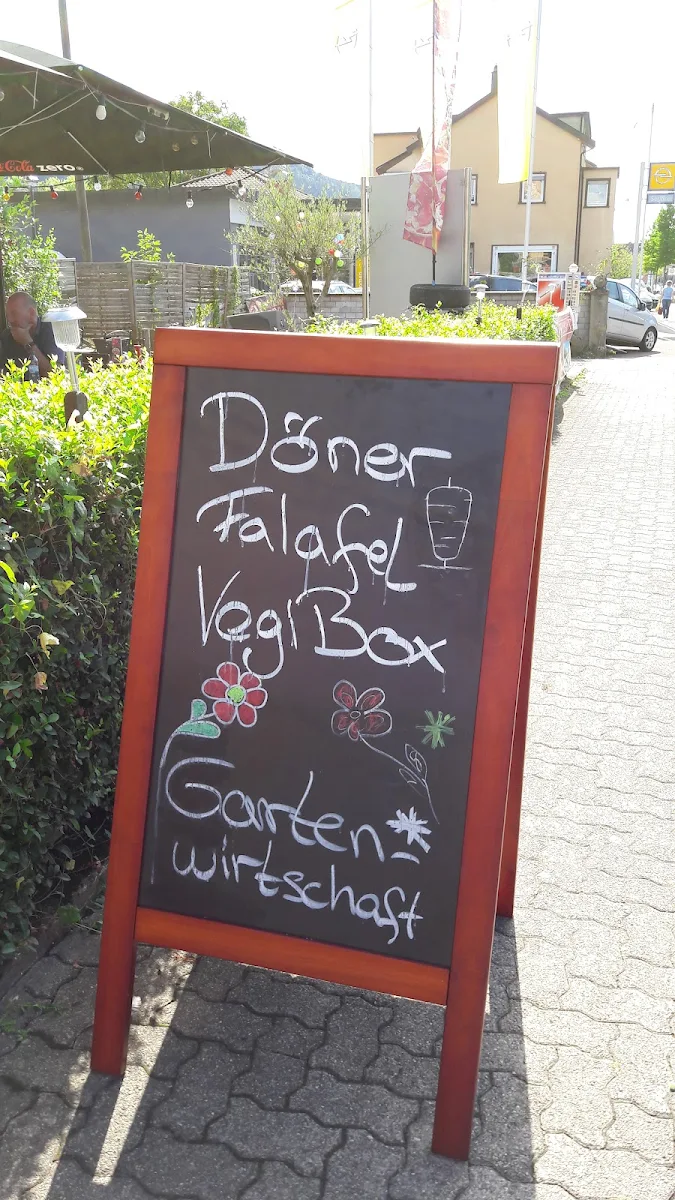 Cola zero
Döner
Falafel
Vegi Box
Garten-
wirtschaft